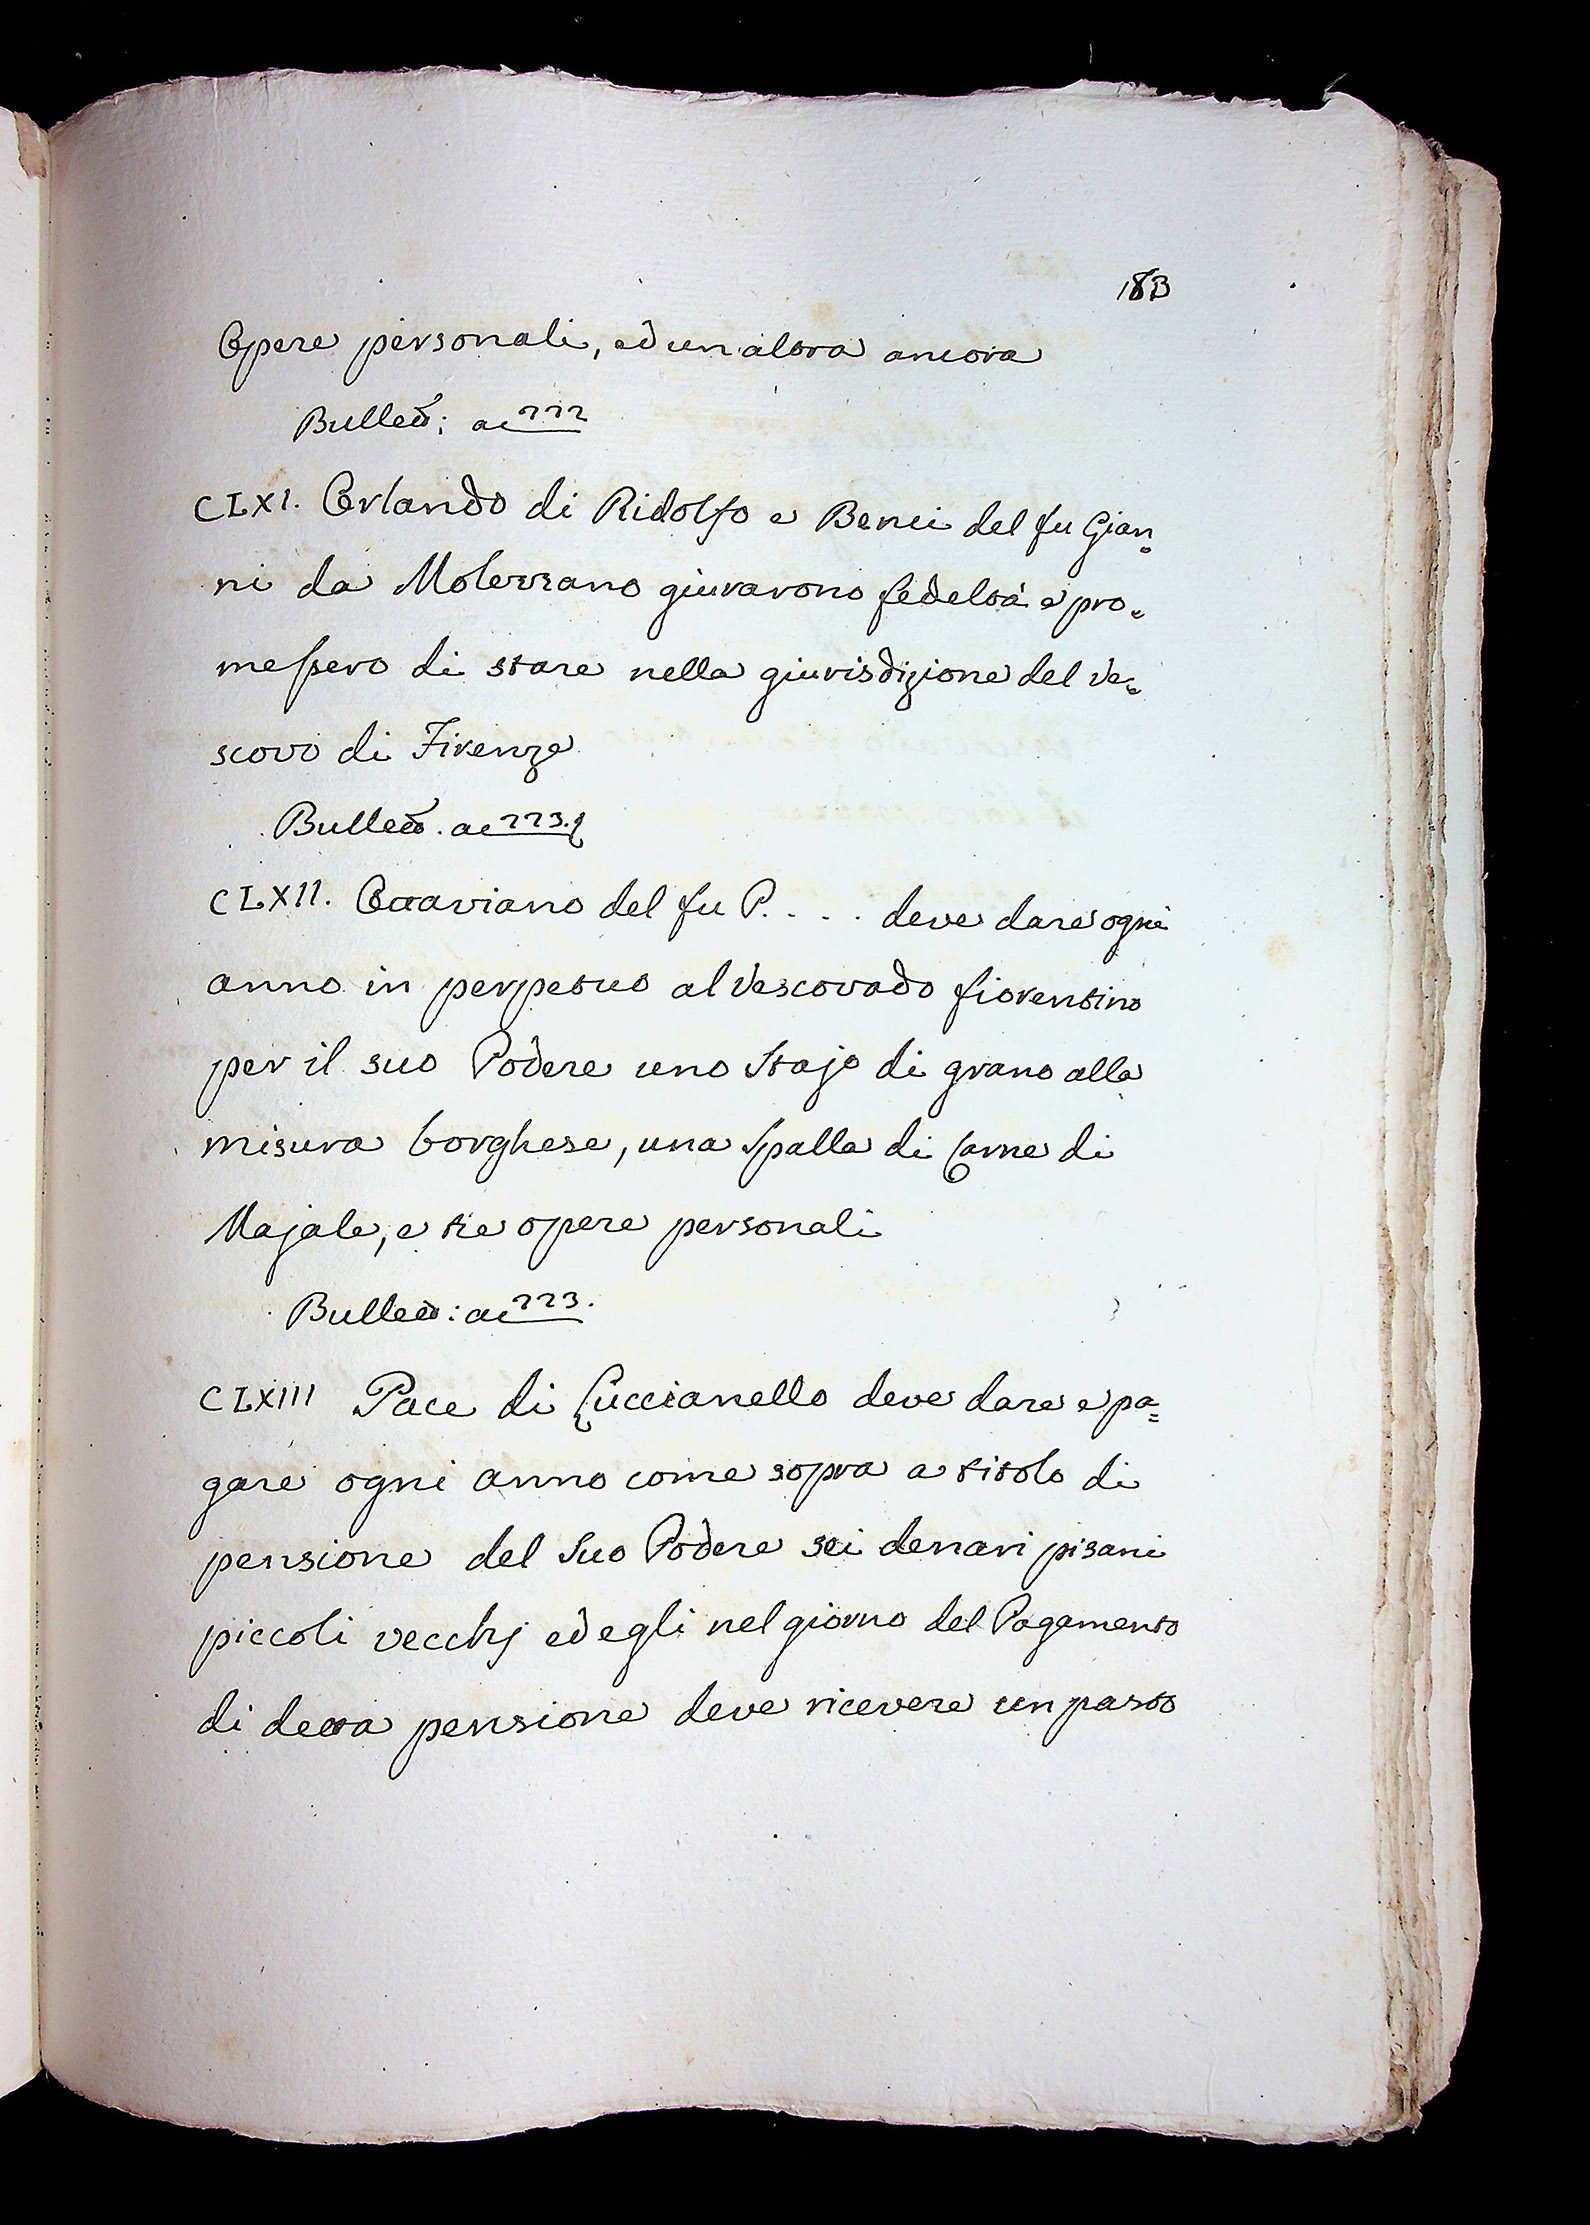 183
Opere personali, ed un altra ancora
Bullett: ac 222
CLXI. Orlando di Ridolfo e Benci del fu Gian=
ni da Molezzano giurarono fedeltà e pro=
messero di stare nella giurisdizione del Ve=
scovo di Firenze
Bullett. ac 223.
CLXII. Ottaviano del fu P. . . . deve dare ogni
anno in perpetuo al Vescovado fiorentino
per il suo Podere uno Stajo di grano alla
misura borghese, una Spalla di Carne di
Majale, e tre opere personali
Bullett: ac 223.
CLXIII Pace di Luccianello deve dare e pa=
gare ogni anno come sopra a titolo di
pensione del Suo Podere sei denari pisani
piccoli vecchj ed egli nel giorno del Pagamento
di detta pensione deve ricevere un pasto